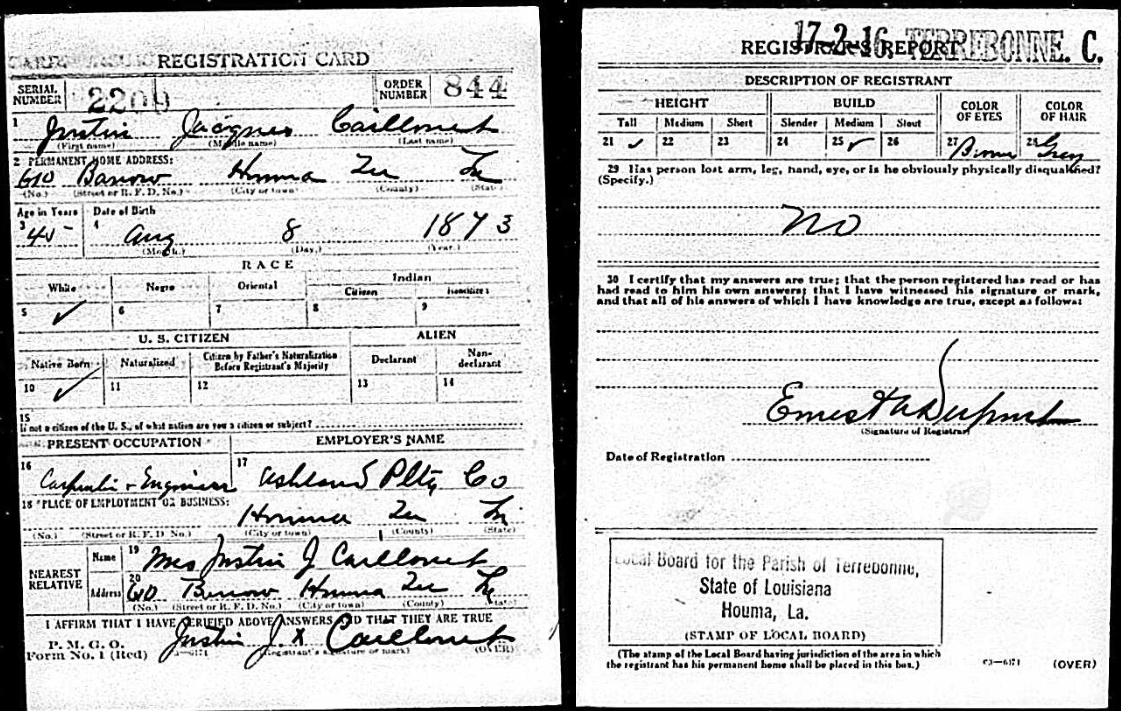 REGISTRATION CARD
SERIAL NUMBER 2209 ORDER NUMBER 844
1 Justin Jacques Caillouet
(First name) (Middle name) (Last name)
2 PERMANENT HOME ADDRESS:
610 Barrow Houma La
(No.) (Street or R. F. D. No.) (City or town) (County) (State)
Age in Years Date of Birth
3 45 4 Aug 8 1873
(Month.) (Day.) (Year.)
RACE
White Negro Oriental Indian
Citizen
5 ✓ 6 7 8 9
U. S. CITIZEN ALIEN
Native Born Naturalized Citizen by Father's Naturalization Before Registrant's Majority Declarant Non-declarant
10 ✓ 11 12 13 14
15
If not a citizen of the U. S., of what nation are you a citizen or subject?
PRESENT OCCUPATION EMPLOYER'S NAME
16 Carpenter + Engineer 17 Ashland Pltg Co
18 PLACE OF EMPLOYMENT OR BUSINESS:
Houma La
(No.) (Street or R. F. D. No.) (City or town) (County) (State)
NEAREST RELATIVE
Name 19 Mrs Justin J Caillouet
Address 20 610 Barrow Houma La
(No.) (Street or R. F. D. No.) (City or town) (County) (State)
I AFFIRM THAT I HAVE VERIFIED ABOVE ANSWERS AND THAT THEY ARE TRUE
P. M. G. O.
Form No. 1 (Red) Justin J. X Caillouet
(Registrant's signature or mark) (OVER)
17-2-16. TERREBONNE. C.
REGISTRAR'S REPORT
DESCRIPTION OF REGISTRANT
HEIGHT BUILD COLOR OF EYES COLOR OF HAIR
Tall Medium Short Slender Medium Stout
21 ✓ 22 23 24 25 ✓ 26 27 Brown 28 Grey
29 Has person lost arm, leg, hand, eye, or is he obviously physically disqualified?
(Specify.)
No
30 I certify that my answers are true; that the person registered has read or has
had read to him his own answers; that I have witnessed his signature or mark,
and that all of his answers of which I have knowledge are true, except as follows:
Ernest A Dupont
(Signature of Registrar)
Date of Registration
Local Board for the Parish of Terrebonne,
State of Louisiana
Houma, La.
(STAMP OF LOCAL BOARD)
(The stamp of the Local Board having jurisdiction of the area in which
the registrant has his permanent home shall be placed in this box.)
(OVER)